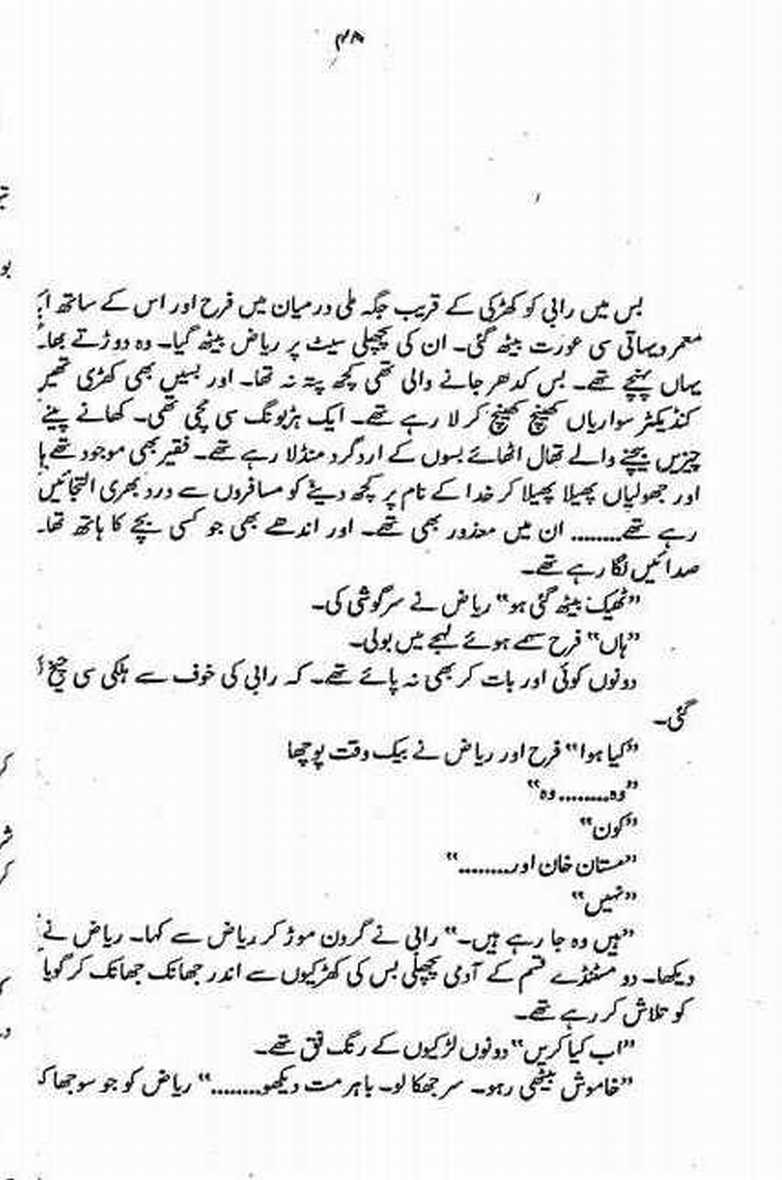 ۴۸
بس میں رابی کو کھڑکی کے قریب جگہ ملی درمیان میں فرح اور اس کے ساتھ
معمر دیہاتی سی عورت بیٹھ گئی۔ ان کی پچھلی سیٹ پر ریاض بیٹھ گیا۔ وہ دوڑتے
یہاں پہنچے تھے۔ بس کدھر جانے والی تھی کچھ پتہ نہ تھا۔ اور بسیں بھی کھڑی تھیں
کنڈیکٹر سواریاں کھینچ کھینچ کر لا رہے تھے۔ ایک ہڑبونگ سی مچی تھی۔ کھانے پینے
چیزیں بیچنے والے تھال اٹھائے بسوں کے اردگرد منڈلا رہے تھے۔ فقیر بھی موجود تھے
اور جھولیاں پھیلا پھیلا کر خدا کے نام پر کچھ دینے کو مسافروں سے درد بھری التجائیں
رہے تھے........ ان میں معذور بھی تھے۔ اور اندھے بھی جو کسی بچے کا ہاتھ تھا
صدائیں لگا رہے تھے۔
”ٹھیک بیٹھ گئی ہو“ ریاض نے سرگوشی کی۔
”ہاں“ فرح سہمے ہوئے لہجے میں بولی۔
دونوں کوئی اور بات کر بھی نہ پائے تھے۔ کہ رابی کی خوف سے ہلکی سی چیخ
گئی۔
”کیا ہوا“ فرح اور ریاض نے بیک وقت پوچھا
”وہ........وہ“
”کون“
”مستان خان اور........“
”نہیں“
”ہیں وہ جا رہے ہیں۔“ رابی نے گردن موڑ کر ریاض سے کہا۔ ریاض نے
دیکھا۔ دو مسٹنڈے قسم کے آدمی پچھلی بس کی کھڑکیوں سے اندر جھانک جھانک کر گویا
کو تلاش کر رہے تھے۔
”اب کیا کریں“ دونوں لڑکیوں کے رنگ فق تھے۔
”خاموش بیٹھی رہو۔ سر جھکا لو۔ باہر مت دیکھو........“ ریاض کو جو سوجھا